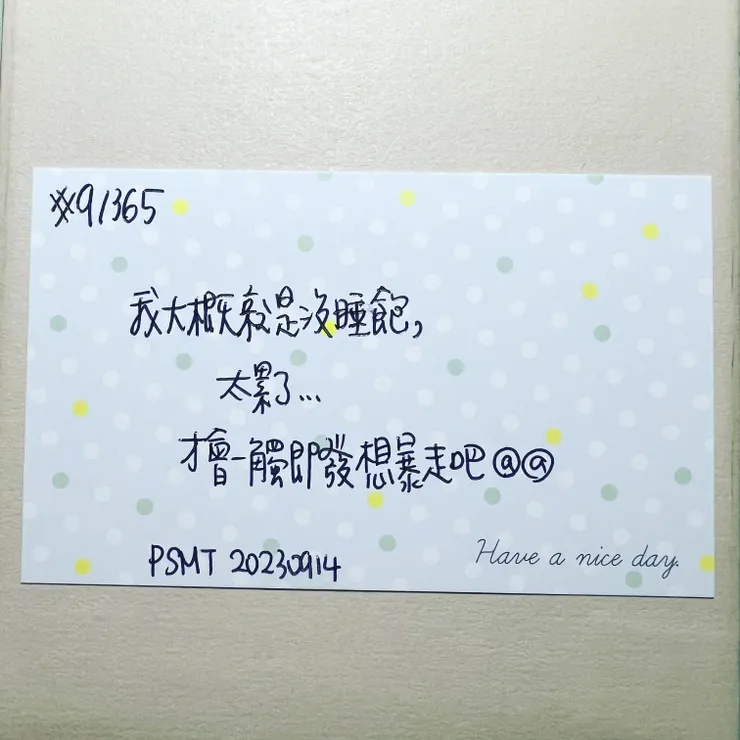 ※91/365
我大概就是沒睡飽，
太累了...
才會一觸即發想暴走吧@@
PSMT 20230914
Have a nice day.